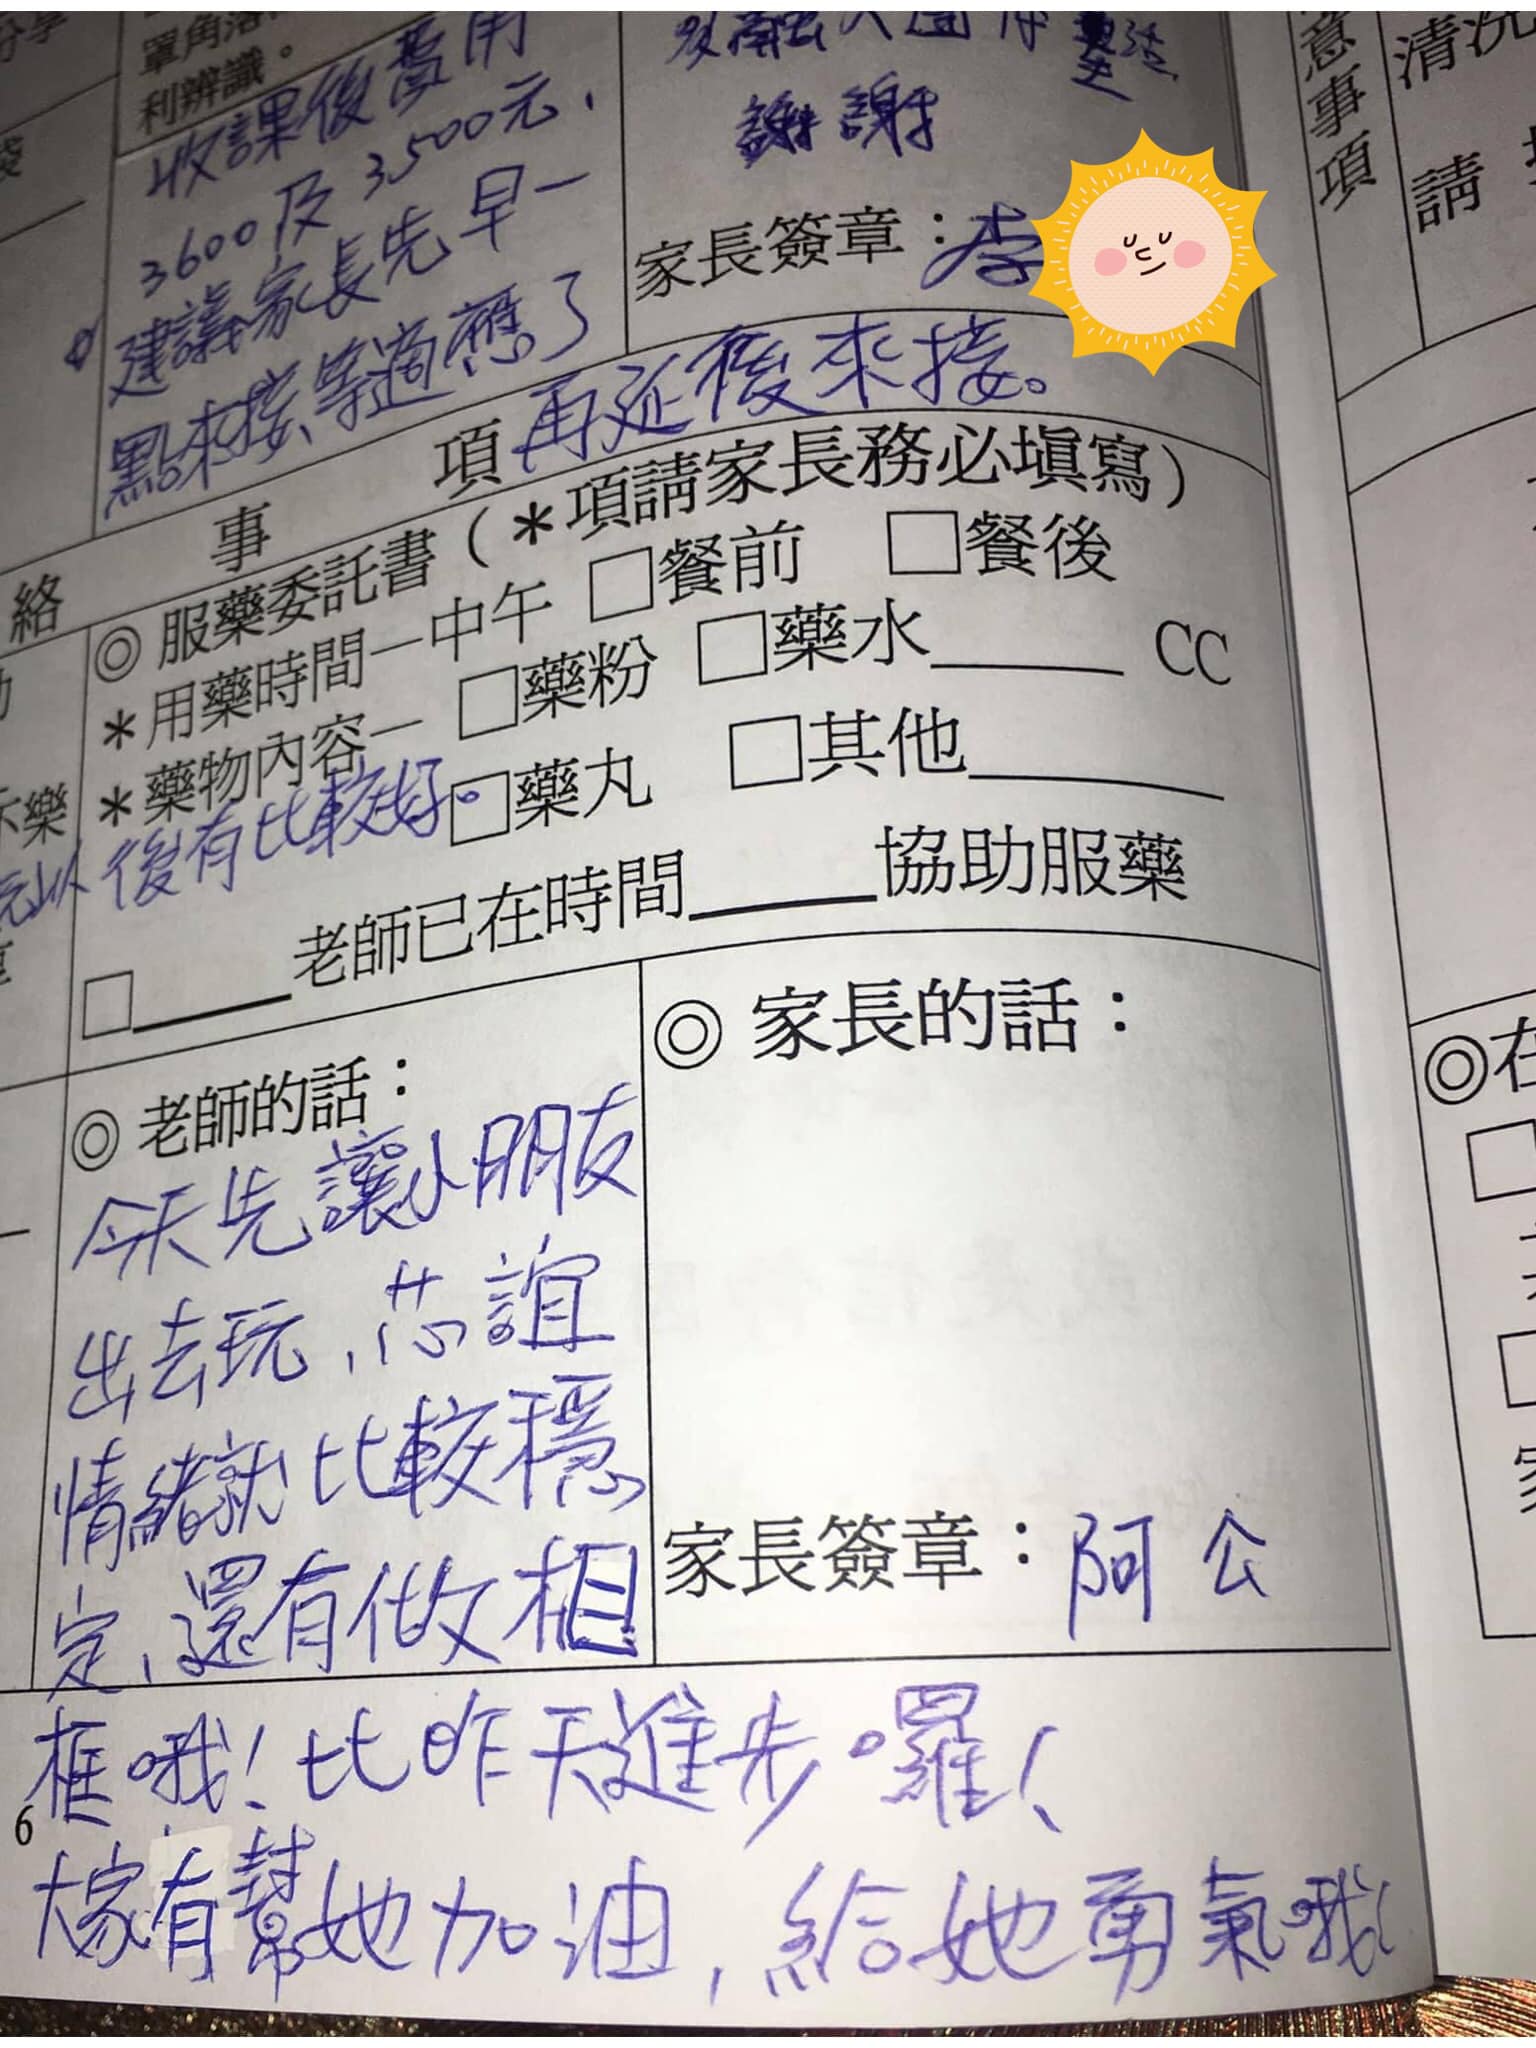 分享
罩角落
利辨識。
收課後費用
3600及3500元,
建議家長先早一
點來接,等適應了
再延後來接。
融入團体
謝謝
家長簽章:李
意事項
清洗
請
絡 事 項
◎ 服藥委託書(*項請家長務必填寫)
*用藥時間—中午 □餐前 □餐後
*藥物內容— □藥粉 □藥水_____ CC
□藥丸 □其他_______
後有比較好。
□_____老師已在時間_____協助服藥
◎ 老師的話:
今天先讓小朋友
出去玩,芯誼
情緒就比較穩
定,還有做相
框哦!比昨天進步囉!
大家有幫她加油,給她勇氣哦!
◎ 家長的話:
家長簽章:阿公
6
◎在